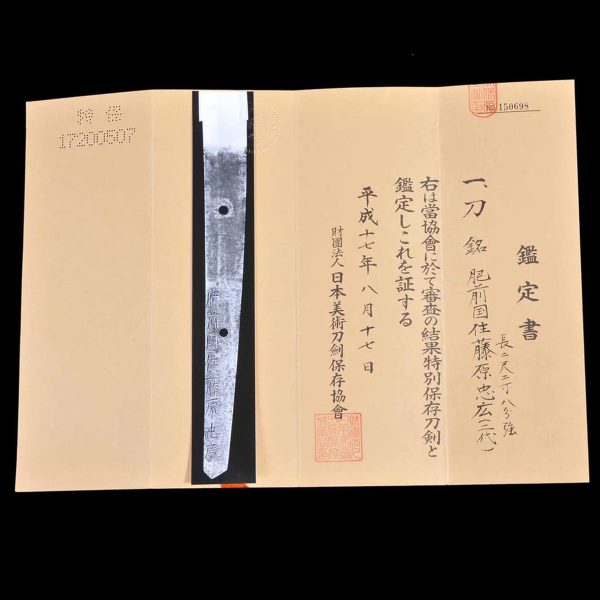 № 150698
鑑定書
一、刀 銘 肥前国住藤原忠広(三代)
長二尺二寸八分強
右は當協會に於て審査の結果特別保存刀剣と
鑑定しこれを証する
平成十七年八月十七日
財團法人日本美術刀剣保存協會
特保
17200507